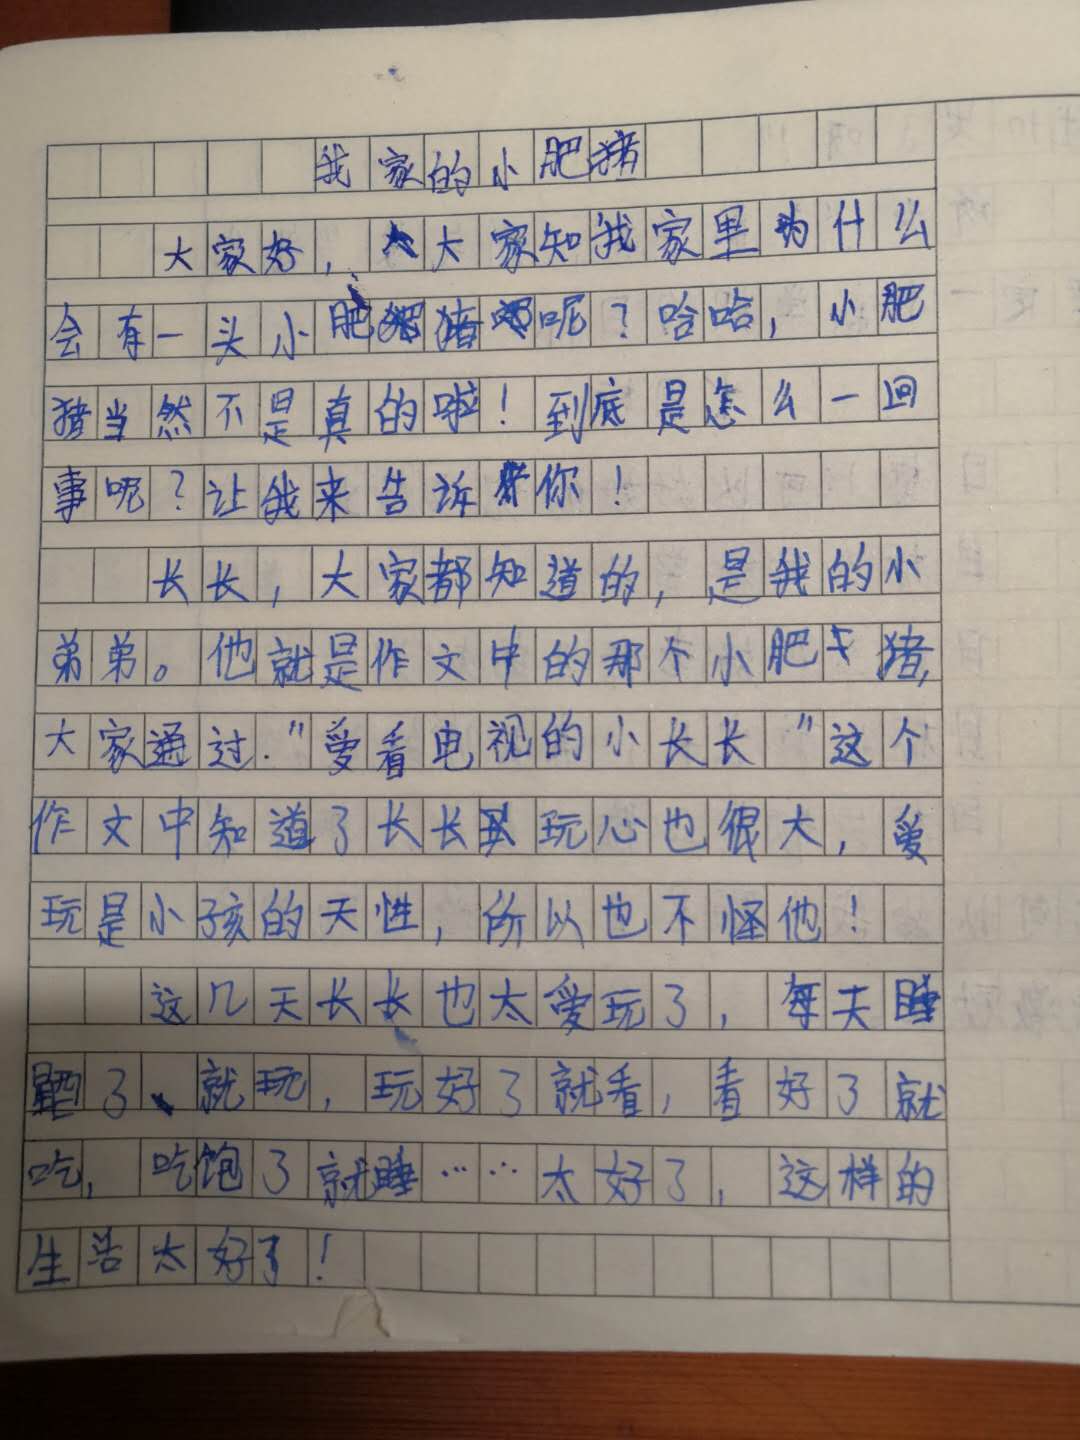 我家的小肥猪
大家好，大家知我家里为什么
会有一头小肥猪呢？哈哈，小肥
猪当然不是真的啦！到底是怎么一回
事呢？让我来告诉你！
长长，大家都知道的，是我的小
弟弟。他就是作文中的那个小肥猪，
大家通过．"爱看电视的小长长"这个
作文中知道了长长玩心也很大，爱
玩是小孩的天性，所以也不怪他！
这几天长长也太爱玩了，每天睡
醒了、就玩，玩好了就看，看好了就
吃，吃饱了就睡……太好了，这样的
生活太好了！